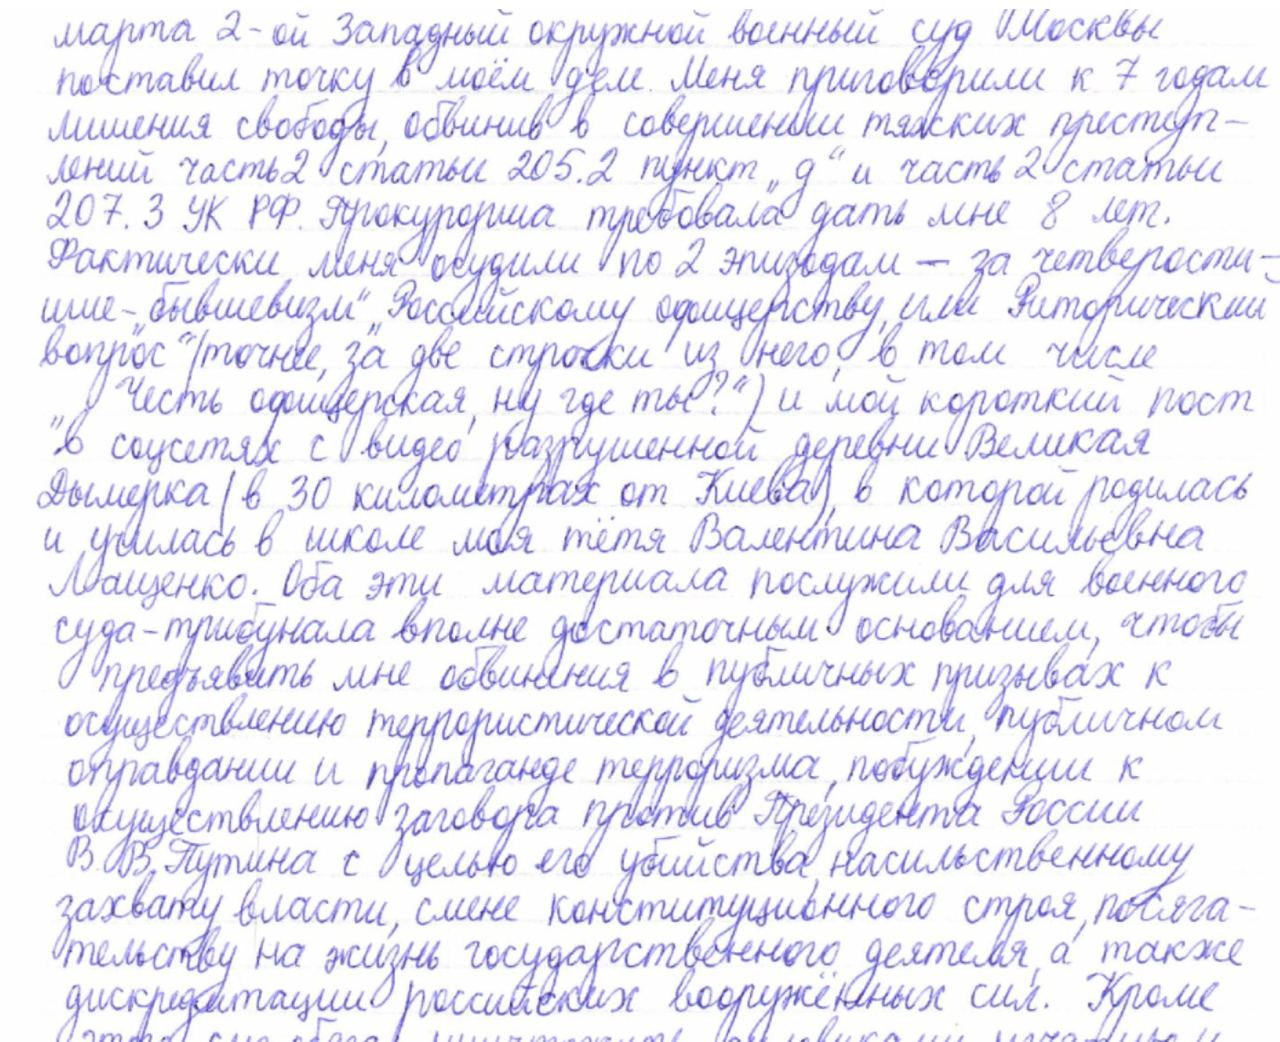 марта 2-ой Западный окружной военный суд Москвы
поставил точку в моём деле. Меня приговорили к 7 годам
лишения свободы, обвинив в совершении тяжских преступ-
лений часть 2 статьи 205.2 пункт „д“ и часть 2 статьи
207.3 УК РФ. Прокурорша требовала дать мне 8 лет.
Фактически меня осудили по 2 эпизодам – за четверости-
шие-„бывшевизм“ „Российскому офицерству, или Риторический
вопрос“ (точнее, за две строчки из него, в том числе
„Честь офицерская, ну где ты?“) и мой короткий пост
в соцсетях с видео разрушенной деревни Великая
Дымерка (в 30 километрах от Киева), в которой родилась
и училась в школе моя тётя Валентина Васильевна
Лащенко. Оба эти материала послужили для военного
суда-трибунала вполне достаточным основанием, чтобы
предъявить мне обвинения в публичных призывах к
осуществлению террористической деятельности, публичном
оправдании и пропаганде терроризма, побуждении к
осуществлению заговора против Президента России
В. В. Путина с целью его убийства, насильственному
захвату власти, смене конституционного строя, посяга-
тельству на жизнь государственного деятеля, а также
дискредитации российских вооружённых сил. Кроме